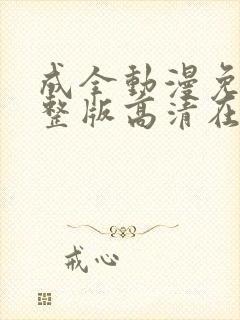 成全動漫免
整版高清在
戒心